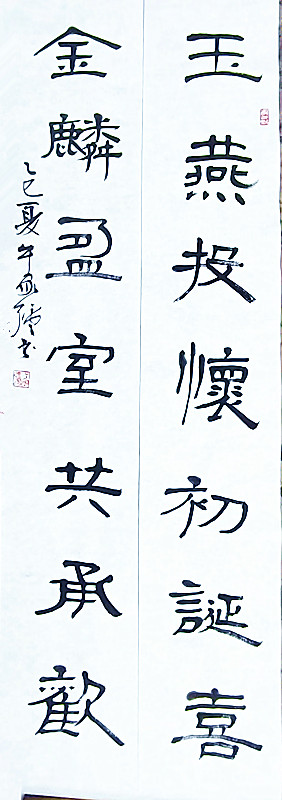 玉燕投懷初誕喜
金麟盈室共承歡
乙巳夏午